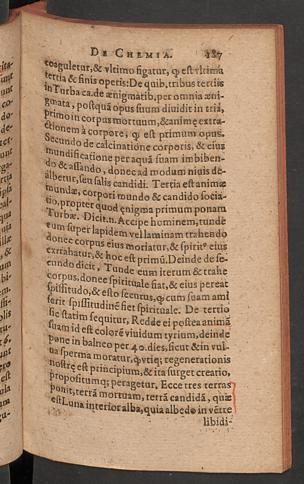 DE CHEMIA. 187
coaguletur, & vltimo figatur, q̃ est vltima
tertia & finis operis: De quib, tribus tertiis
in Turba ca. de ænigmatib, per omnia æni-
gmata, postquã opus suum diuidit in triã,
primo in corpus mortuum, & animę extra-
ctionem à corpore, q̃ est primum opus.
Secundo de calcinatione corporis, & eius
mundificatione per aquã suam imbiben-
do & assando, donec ad modum niuis de-
albetur, seu salis candidi. Tertia est animæ
mundæ, corpori mundo & candido socia-
tio, propter quod ęnigma primum ponam
Turbæ. Dicit. n. Accipe hominem, tunde
eum super lapidem vel laminam trahendo
donec corpus eius moriatur, & spiritꝰ eius
extrahatur, & hoc est primũ. Deinde de se-
cundo dicit, Tunde eum iterum & trahe
corpus, donec spirituale fiat, & eius pereat
spissitudo, & esto securus, q̃ cum suam ami
serit spissitudinẽ fiet spirituale. De tertio
sic statim sequitur, Redde ei postea animã
suam id est colorẽ viuidum tyrium, deinde
pone in balneo per 40. dies, sicut & in vul-
ua sperma moratur, q̃vtiq; regenerationis
nostrę est principium, & ita surget creatio,
propositumq; peragetur, Ecce tres terras
ponit, terrã mortuam, terrã candidã, quæ
est Luna interior alba, quia albedo in vẽtre
libidi-